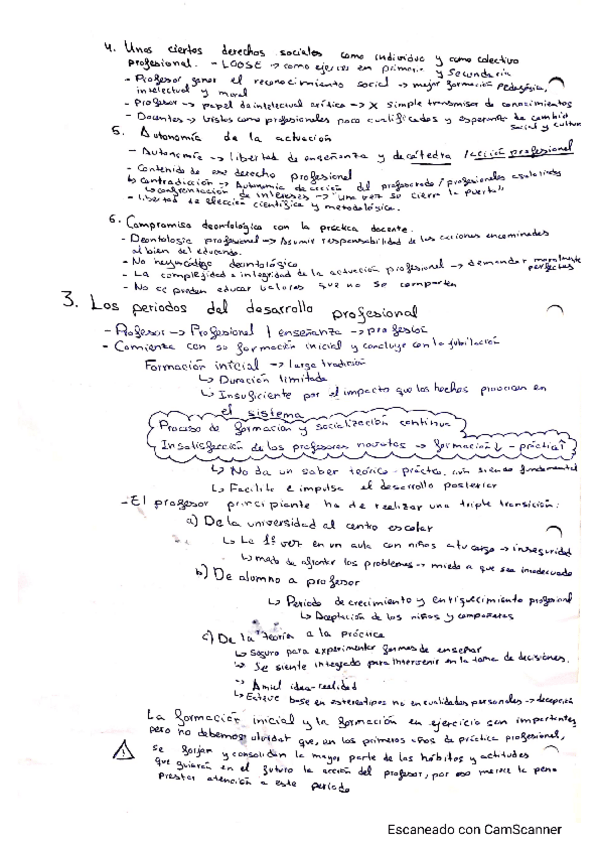 4. Unos ciertos derechos sociales como individuo y como colectivo
profesional. - LOGSE -> como ejercer en primaria y Secundaria
- Profesor ganar el reconocimiento social -> mejor formación pedagógica,
intelectual y moral
- Profesor -> papel de intelectual crítico -> X simple transmisor de conocimientos
- Docentes -> vistos como profesionales poco cualificados y esperante de cambio
social y cultura
5. Autonomía de la actuación
- Autonomía -> libertad de enseñanza y de cátedra / acción profesional
- Contenido de ese derecho profesional
↳ contradicción -> Autonomía de acción del profesorado / profesionales
↳ confrontación de intereses -> "una vez se cierra la puerta"
- libertad de elección científica y metodológica.
6. Compromiso deontológico con la práctica docente.
- Deontología profesional -> Asumir responsabilidad de las acciones encaminadas
al bien del educando.
- No hay un código deontológico
- La complejidad e integridad de la actuación profesional -> demandar moralmente
perfectos
- No se pueden educar valores que no se comparten
3. Los periodos del desarrollo profesional
- Profesor -> Profesional / enseñanza -> profesión
- Comienza con su formación inicial y concluye con la jubilación
Formación inicial -> larga tradición
↳ Duración limitada
↳ Insuficiente por el impacto que los hechos provocan en
el sistema
Proceso de formación y socialización continua
Insatisfacción de los profesores novatos -> formación ↓ - práctica ↑
↳ No da un saber teórico-práctico, aún siendo fundamental
↳ Facilita e impulsa el desarrollo posterior
- El profesor principiante ha de realizar una triple transición:
a) De la universidad al centro escolar
↳ La 1ª vez en un aula con niños a tu cargo -> inseguridad
↳ modo de afrontar los problemas -> miedo a que sea inadecuado
b) De alumno a profesor
↳ Periodo de crecimiento y enriquecimiento profesional
↳ Aceptación de los niños y compañeros
c) De la teoría a la práctica
↳ Seguro para experimentar formas de enseñar
↳ Se siente integrado para intervenir en la toma de decisiones.
↳ idea-realidad
↳ base en estereotipos no en cualidades personales -> decepción
La formación inicial y la formación en ejercicio son importantes
pero no debemos olvidar que, en los primeros años de práctica profesional,
se forjan y consolidan la mayor parte de los hábitos y actitudes
que guiarán en el futuro la acción del profesor, por eso merece la pena
prestar atención a este periodo
Escaneado con CamScanner